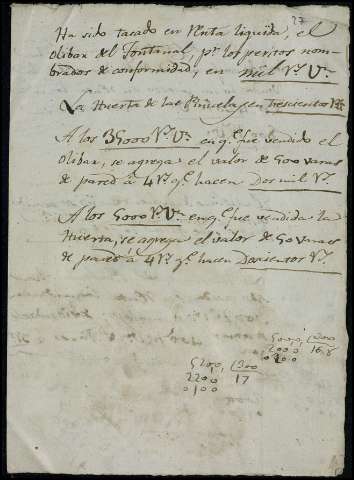 27
Ha sido tasado en Renta liquida, el
olibar del Fontanal, pr. los peritos nom-
brados de conformidad, en mil Rs. Vn.
La Huerta de las Piñuelas en trescientos Rs.
A los 35000 Rs. Vn. en q.e fue vendido el
olibar, se agrega el valor de 500 varas
de pared à 4 Rs. q.e hacen Dos mil Rs.
A los 5000 Rs. Vn. en q.e fue vendida la
Huerta, se agrega el valor de 50 varas
de pared à 4 Rs. q.e hacen Doscientos Rs.
5000, 300
2000 16,8
0200
5200, 300
2200 17
0100